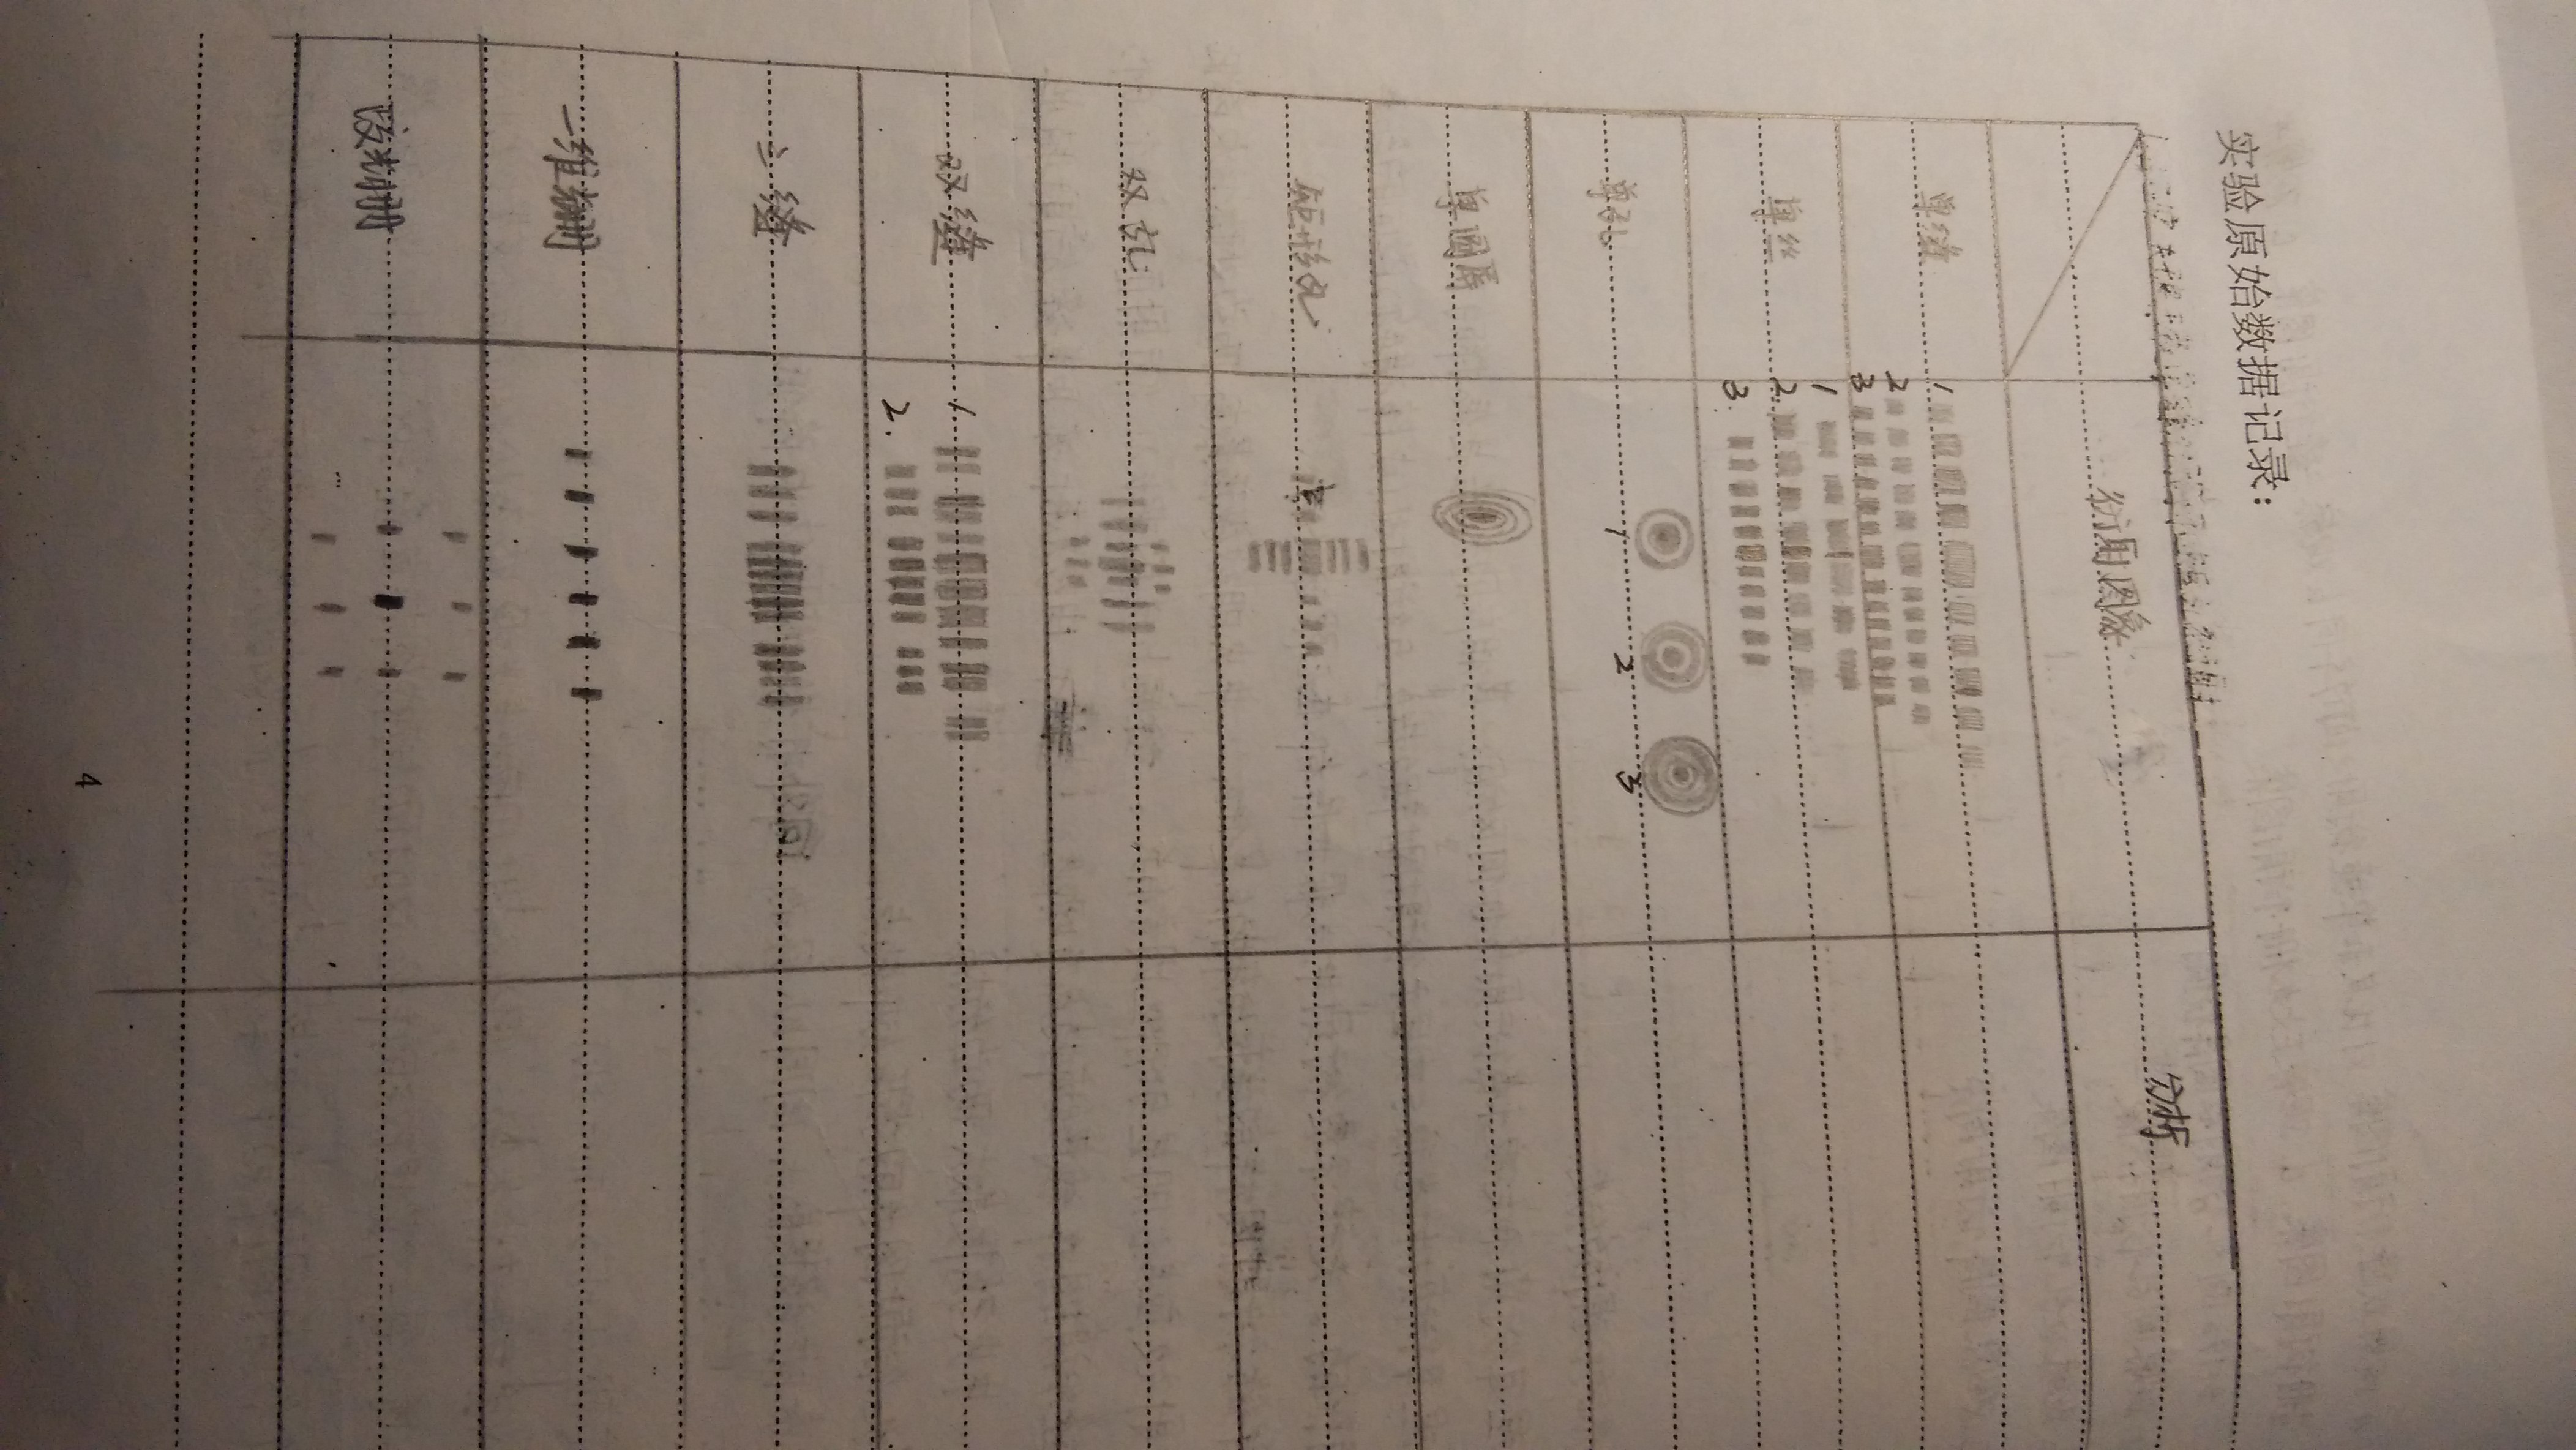 实验原始数据记录:
衍射图象 分析
单缝 1
2
3
单丝 1
2
3.
单孔 1 2 3
单圆屏
矩形孔
双孔
双缝 1
2.
三缝
一维光栅
4